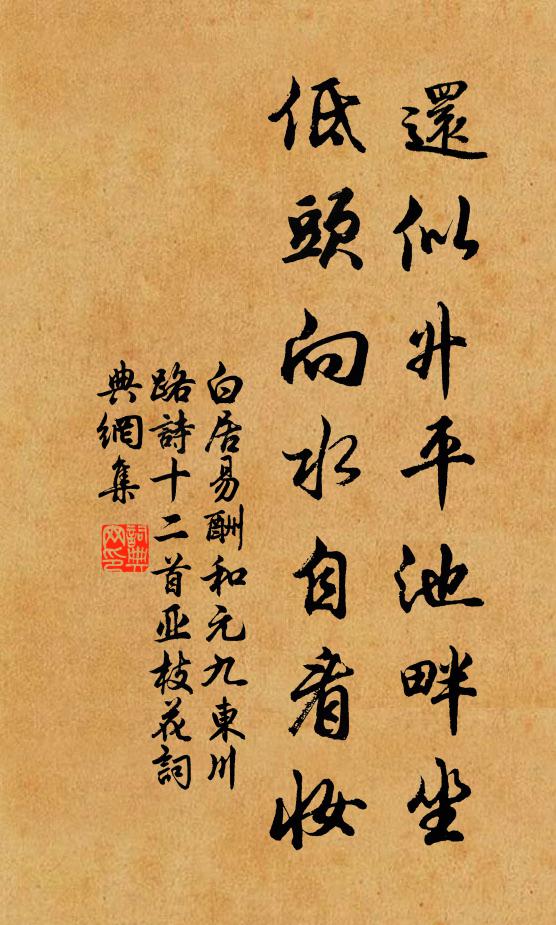 還似升平池畔坐
低頭向水自看妝
白居易酬和元九東川
路詩十二首亚枝花詞
典網集
詞典
网印